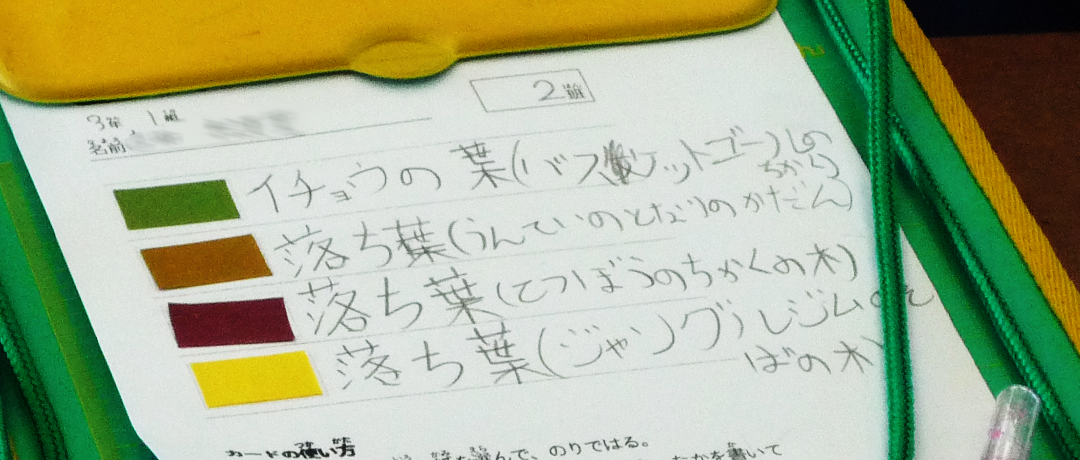 2 班
3年 1組
名前
イチョウの葉(バスケットゴールの
ちかく)
落ち葉(うんていのとなりのかだん)
落ち葉(てつぼうのちかくの木)
落ち葉(ジャングルジムのそ
ばの木)
カードの使い方
選んで、のりではる。
を書いて